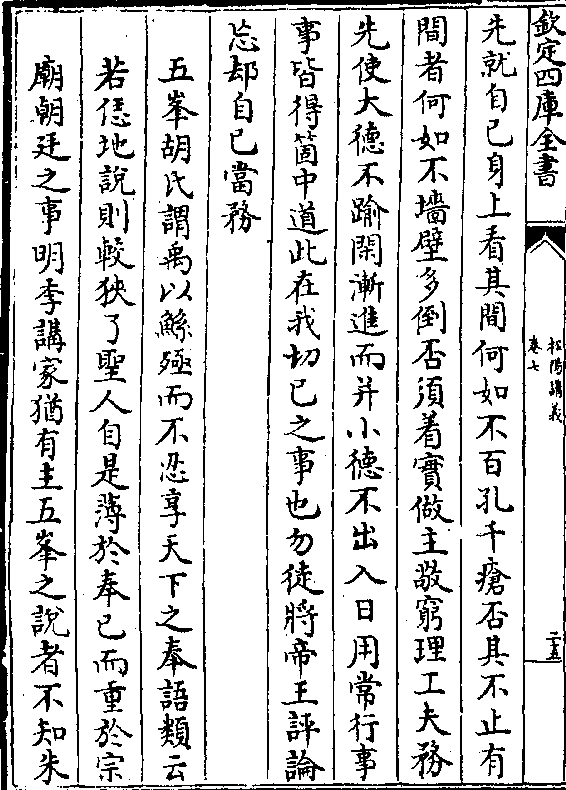 欽定四庫全書
松陽講義
卷七
二十五
先就自已身上看其間何如不百孔千瘡否其不止有
間者何如不墻壁多倒否須着實做主敬窮理工夫務
先使大德不踰閑漸進而并小德不出入日用常行事
事皆得箇中道此在我切已之事也勿徒將帝王評論
忘却自已當務
五峯胡氏謂禹以鯀殛而不忍享天下之奉語類云
若恁地說則較狹了聖人自是薄於奉已而重於宗
廟朝廷之事明季講家猶有主五峯之說者不知朱